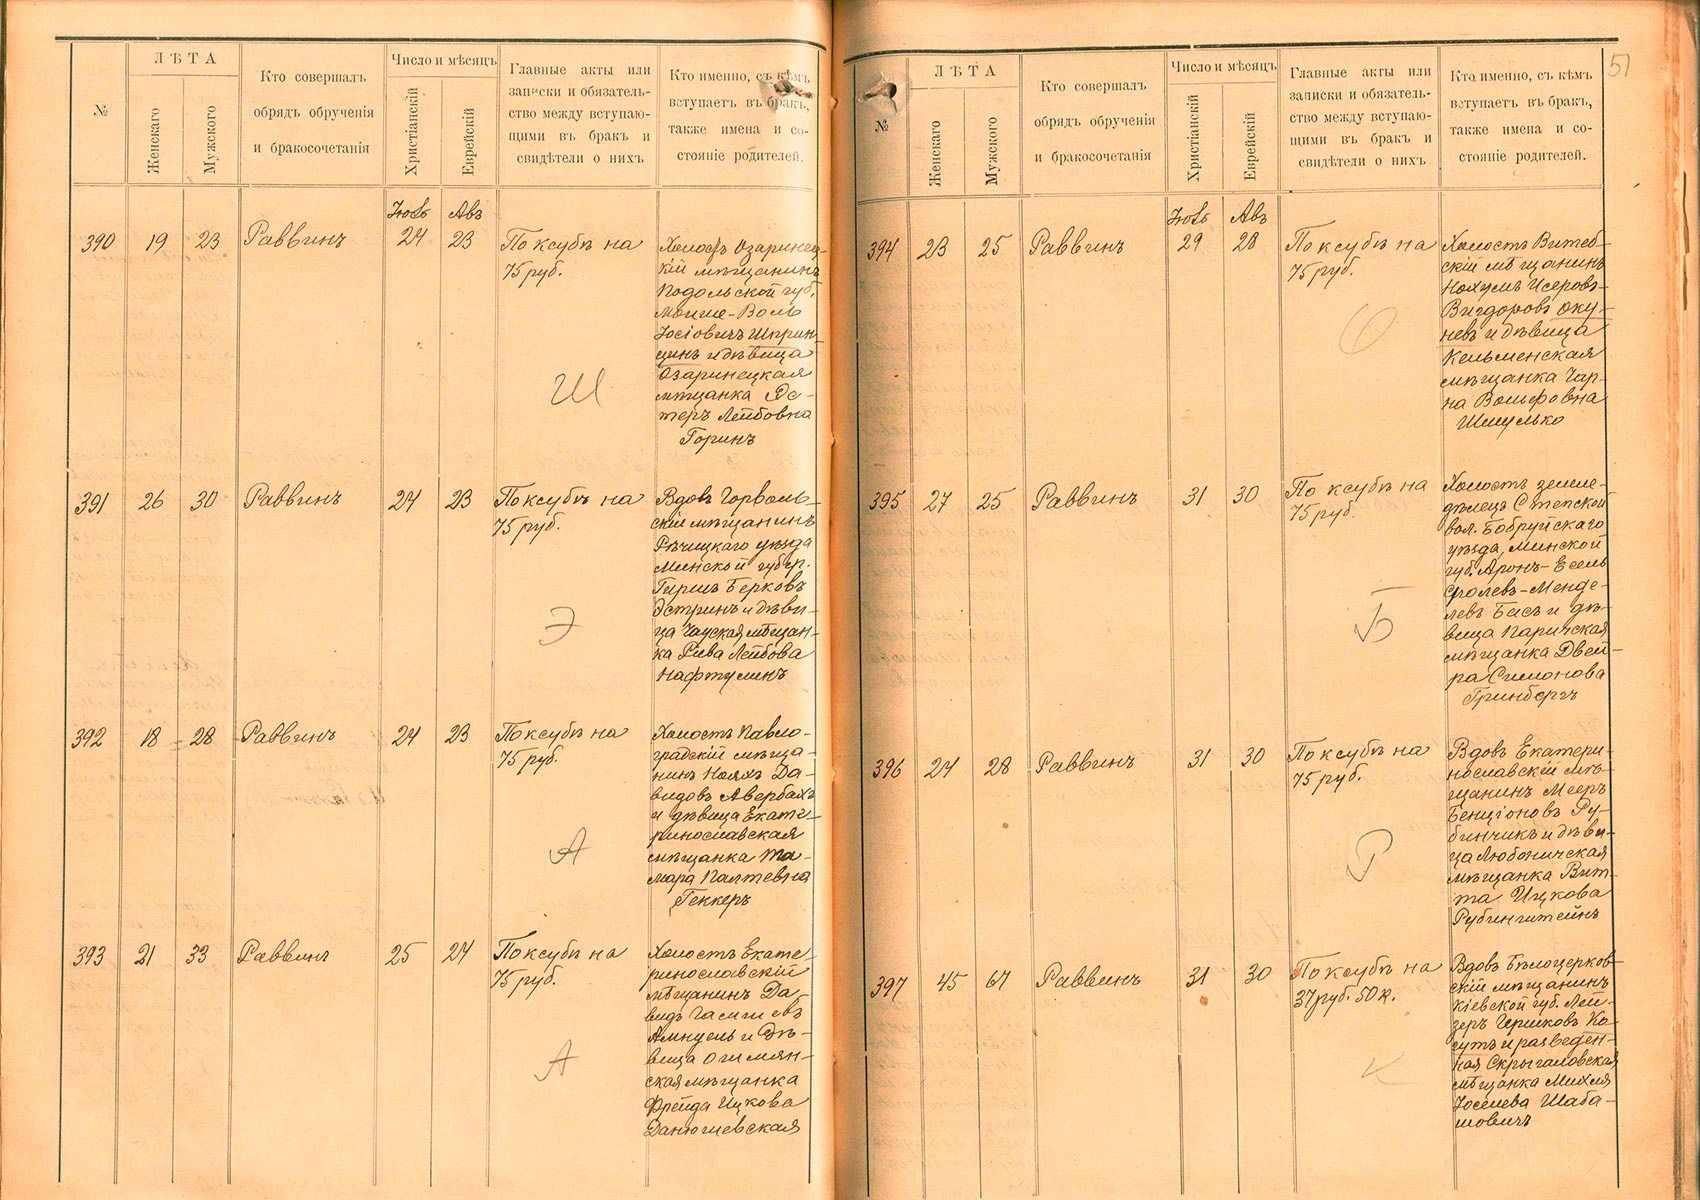 ЛѢТА
Число и мѣсяцъ
№
Женскаго
Мужского
Кто совершалъ
обрядъ обрученія
и бракосочетанія
Христіанскій
Еврейскій
Главные акты или
записки и обязатель-
ство между вступаю-
щими въ бракъ и
свидѣтели о нихъ
Кто именно, съ кѣмъ
вступаетъ въ бракъ,
также имена и со-
стояніе родителей.
Іюль Авъ
390 19 23 Раввинъ 24 23 По ксубѣ на
75 руб.
Холостъ Озаринец-
кій мѣщанинъ
Подольской губ.
Мойше-Воль
Іосіовичъ Шприн-
цинъ и дѣвица
Озаринецкая
мѣщанка Эс-
теръ Лейбовна
Горинъ
Ш
391 26 30 Раввинъ 24 23 По ксубѣ на
75 руб.
Вдовъ Горволь-
скій мѣщанинъ
Рѣчицкаго уѣзда
Минской губер.
Гиршъ Берковъ
Эстринъ и дѣви-
ца Чауская мѣщан-
ка Рива Лейбова
Нафтулинъ
Э
392 18 28 Раввинъ 24 23 По ксубѣ на
75 руб.
Холостъ Павло-
градскій мѣща-
нинъ Ноахъ Да-
видовъ Авербахъ
и дѣвица Екате-
ринославская
мѣщанка Та-
мара Палтевна
Геккеръ
А
393 21 33 Раввинъ 25 24 По ксубѣ на
75 руб.
Холостъ Екате-
ринославскій
мѣщанинъ Да-
видъ
и Дѣ-
вица Ошмян-
ская мѣщанка
Фрейда Ицкова
Данюшевская
А
51
ЛѢТА
Число и мѣсяцъ
№
Женскаго
Мужского
Кто совершалъ
обрядъ обрученія
и бракосочетанія
Христіанскій
Еврейскій
Главные акты или
записки и обязатель-
ство между вступаю-
щими въ бракъ и
свидѣтели о нихъ
Кто именно, съ кѣмъ
вступаетъ въ бракъ,
также имена и со-
стояніе родителей.
Іюль Авъ
394 23 25 Раввинъ 29 28 По ксубѣ на
75 руб.
Холостъ Витеб-
скій мѣщанинъ
Нохумъ Исеровъ-
Вигдоровъ Оку-
невъ и дѣвица
Кельменская
мѣщанка Чар-
на Вольфовна
Шмулько
О
395 27 25 Раввинъ 31 30 По ксубѣ на
75 руб.
Холостъ земле-
дѣлецъ Степской
вол. Бобруйскаго
уѣзда, Минской
губ. Аронъ-Есель
Сролевъ-Менде-
левъ Басъ и дѣ-
вица Паричская
мѣщанка Двей-
ра Симонова
Гринбергъ
Б
396 24 28 Раввинъ 31 30 По ксубѣ на
75 руб.
Вдовъ Екатери-
нославскій мѣ-
щанинъ Мееръ
Бенціоновъ Ру-
бинчикъ и дѣви-
ца Любоничская
мѣщанка Вит-
та Ицкова
Рубинштейнъ
Р
397 45 67 Раввинъ 31 30 По ксубѣ на
37 руб. 50 к.
Вдовъ Бѣлоцерков-
скій мѣщанинъ
Кіевской губ. Лей-
зеръ Гершковъ Ко-
гутъ и разведен-
ная Скрыгаловская
мѣщанка Михля
Іоселева Шаба-
шовичъ
К